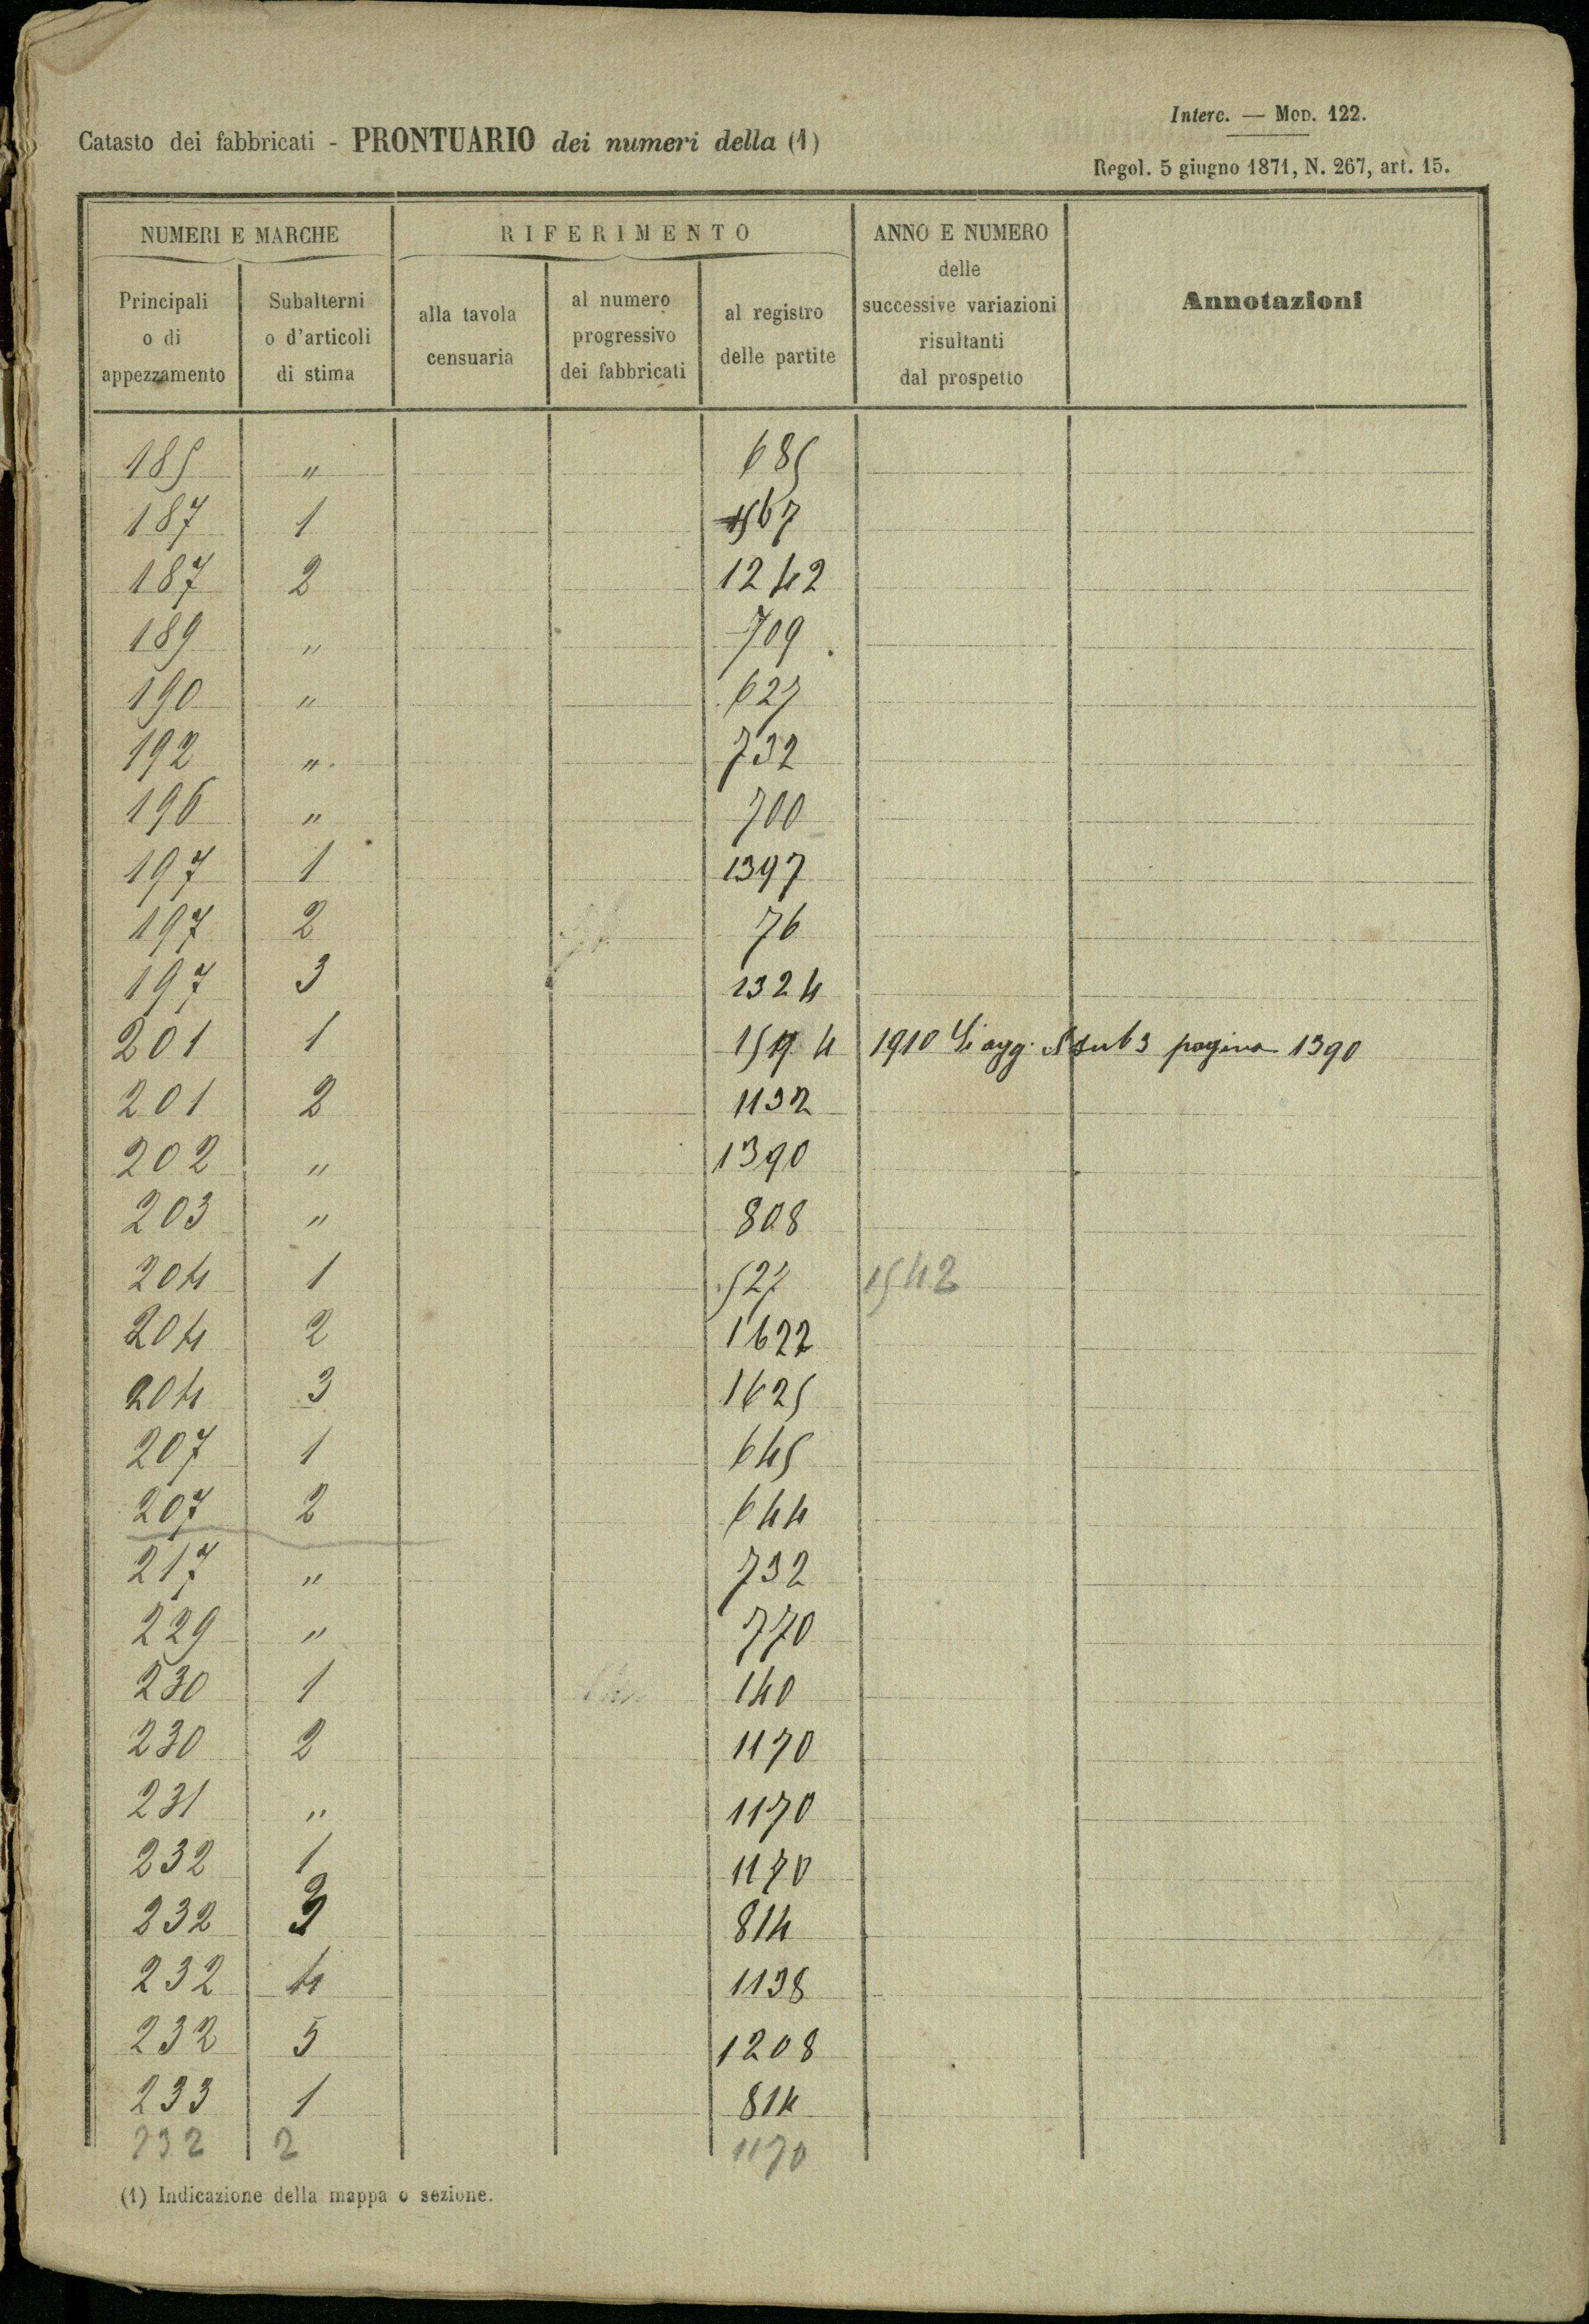 Interc. — Mod. 122.
Catasto dei fabbricati - PRONTUARIO dei numeri della (1)
Regol. 5 giugno 1871, N. 267, art. 15.
NUMERI E MARCHE RIFERIMENTO ANNO E NUMERO delle successive variazioni risultanti dal prospetto Annotazioni
Principali o di appezzamento Subalterni o d'articoli di stima alla tavola censuaria al numero progressivo dei fabbricati al registro delle partite
185 " 685
187 1 1567
187 2 1242
189 " 709
190 " 627
192 " 732
196 " 700
197 1 1397
197 2 76
197 3 1324
201 1 1910 Si agg. sub 3 pagina 1390
201 2 1132
202 " 1390
203 " 808
204 1 527 1542
204 2 1622
204 3 1625
207 1 645
207 2 644
217 " 732
229 " 770
230 1 140
230 2 1170
231 " 1170
232 1 1170
232 3 814
232 4 1138
232 5 1208
233 1 814
232 2 1170
(1) Indicazione della mappa o sezione.